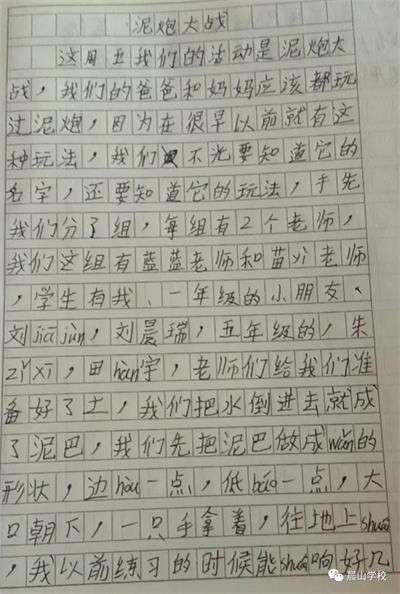 泥炮大战
这周五我们的活动是泥炮大
战，我们的爸爸和妈妈应该都玩
过泥炮，因为在很早以前就有这
种玩法，我们不光要知道它的
名字，还要知道它的玩法，手先
我们分了组，每组有2个老师，
我们这组有蓝蓝老师和苗yi老师
，学生有我、一年级的小朋友、
刘jiājùn，刘晨瑞，五年级的，朱
zǐxī，田hàn宇，老师们给我们准
备好了土，我们把水倒进去就成
了泥巴，我们先把泥巴做成wǎn的
形状，边hòu一点，低báo一点，大
口朝下，一只手拿着，往地上shuāi
，我以前练习的时候能shuāi响好几
晨山学校